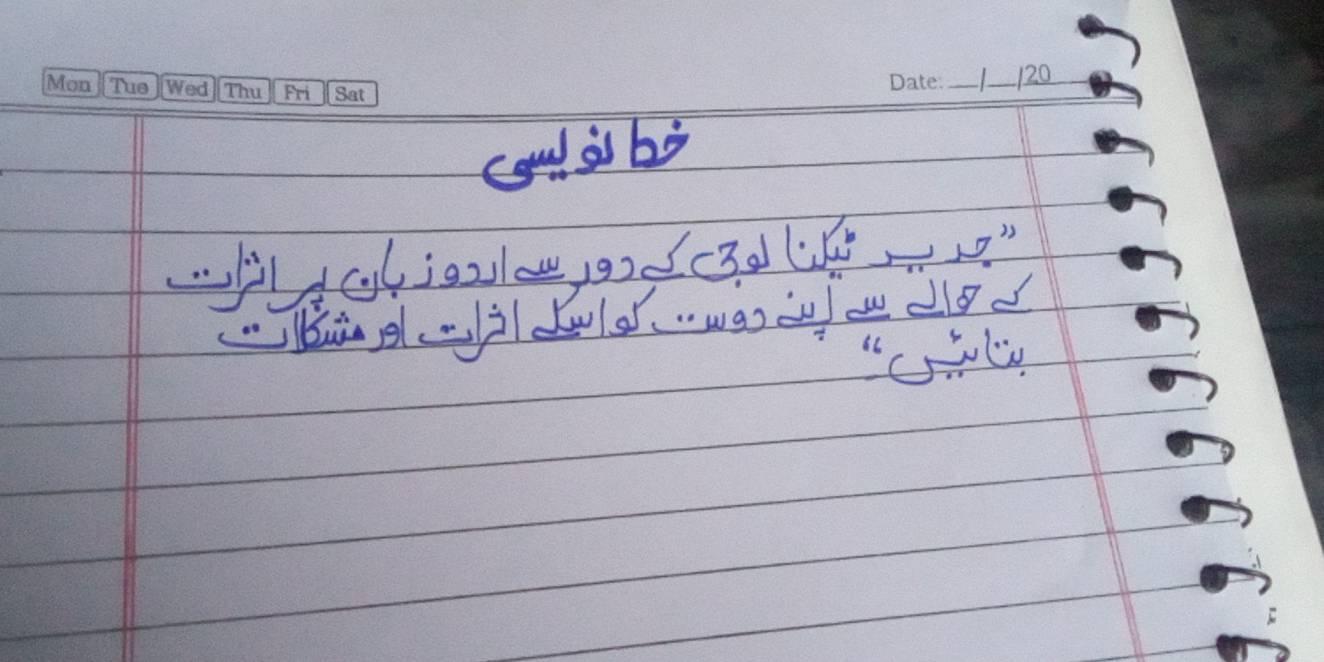 Mon Tue Wed Thu Fri Sat
Date: __/__/20
خط نویسی
”جدید ٹیکنالوجی کے دور سے اردو زبان پر اثرات
کے حوالے سے اپنے دوست کو اسکے اثرات اور مشکلات
بتائیں“